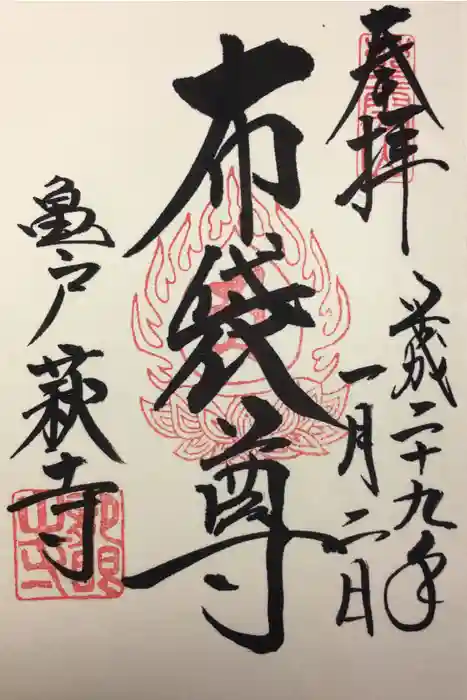 奉拝
平成二十九年
一月二日
布袋尊
亀戸 萩寺